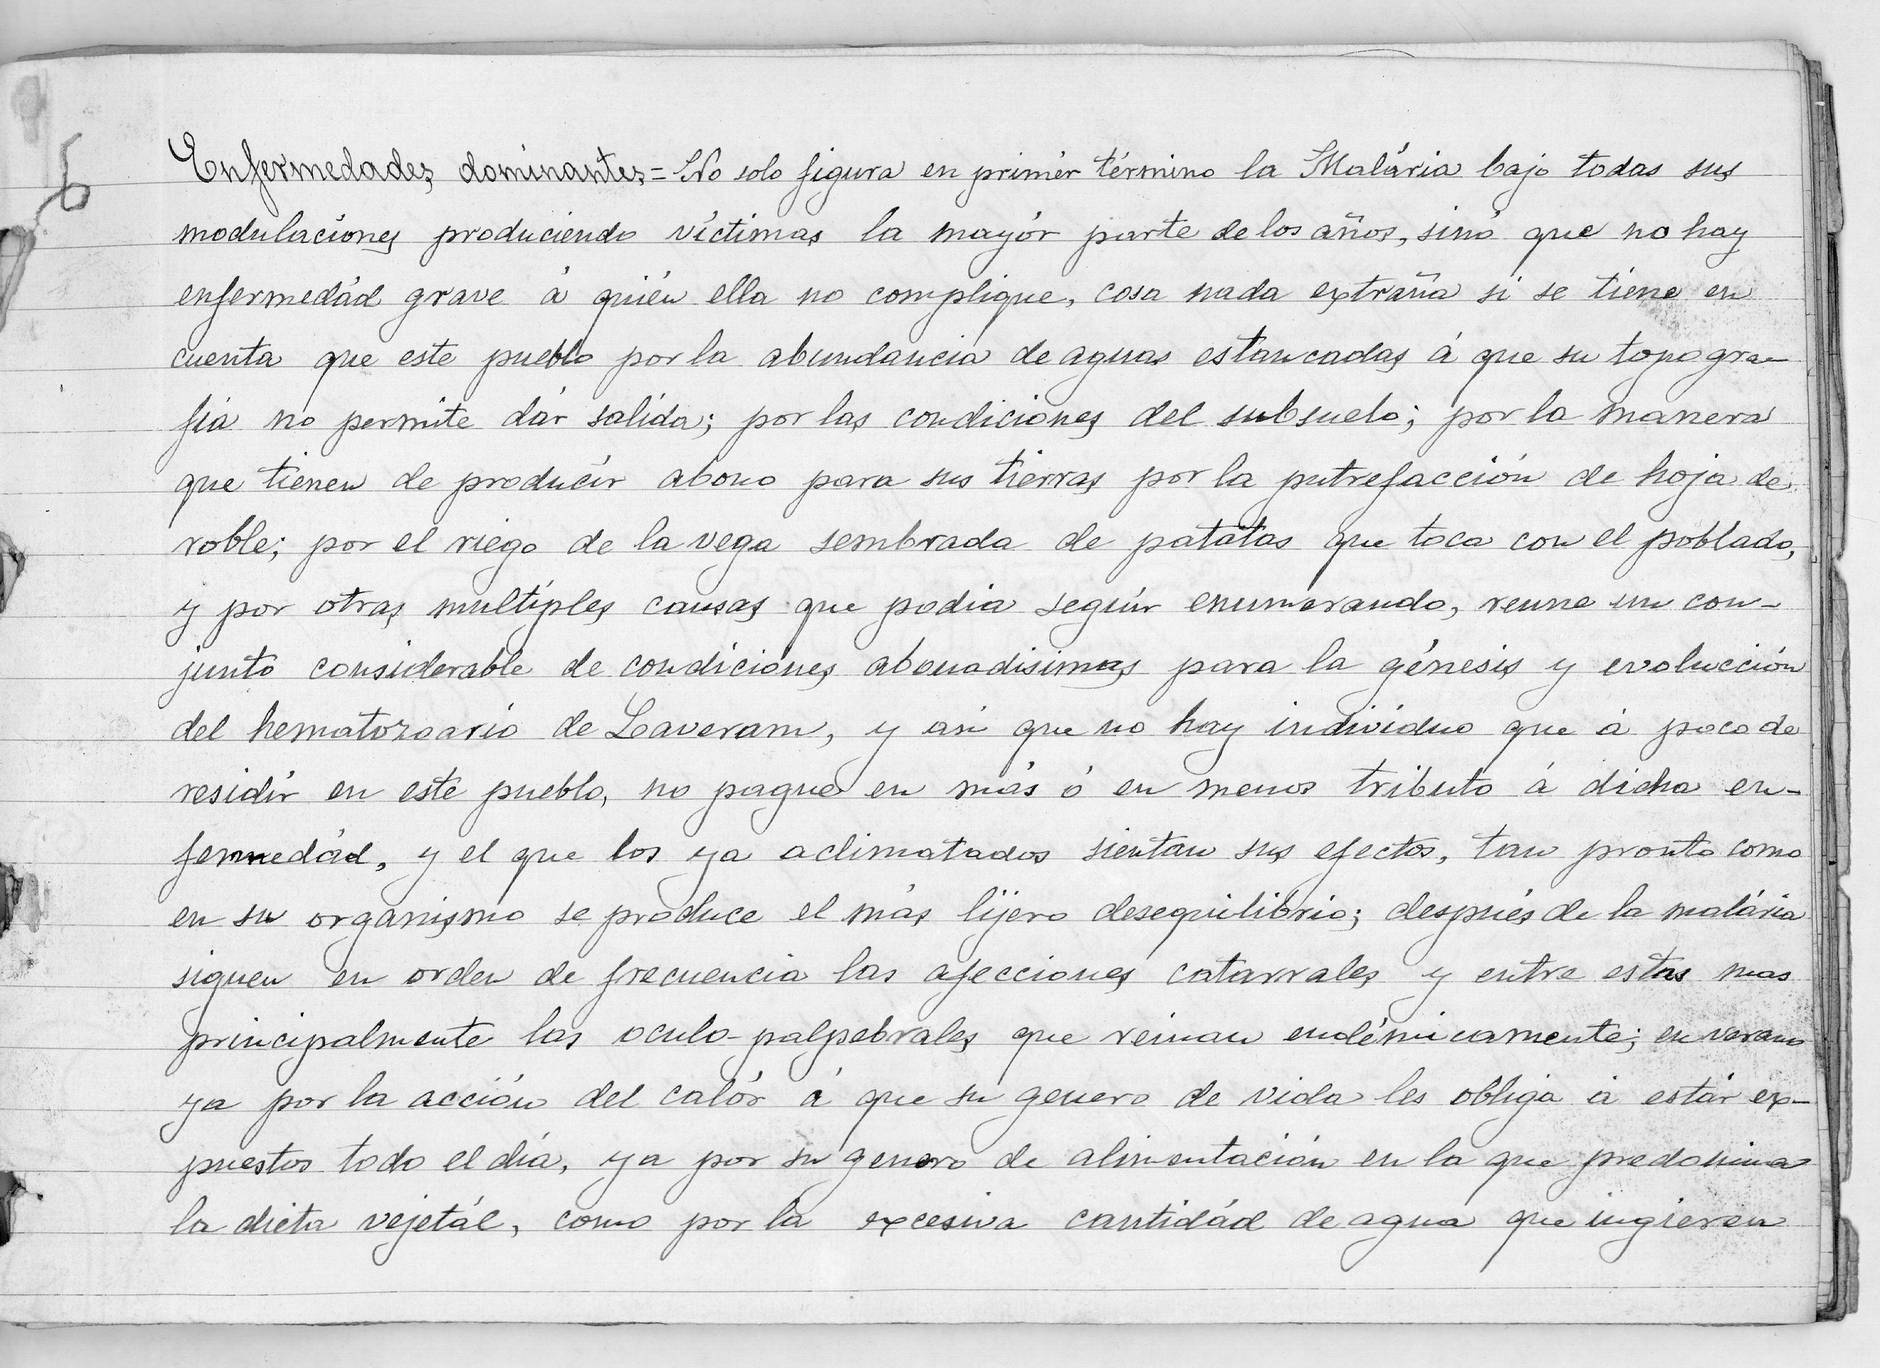 Enfermedades dominantes = No solo figura en primér término la Malária bajo todas sus
modulaciónes produciendo víctimas la mayór parte de los años, sinó que no hay
enfermedád grave á quién ella no complique, cosa nada extraña si se tiene en
cuenta que este pueblo por la abundancia de aguas estancadas á que su topogra-
fia no permite dár salida; por las condiciones del subsuelo; por la manera
que tienen de producír abono para sus tierras por la putrefacción de hoja de
roble; por el riego de la vega sembrada de patatas que toca con el poblado,
y por otras multíples causas que podia seguír enumerando, reune un con-
junto considerable de condiciónes abonadisimas para la génesis y evolucción
del hematozoario de Laveram, y asi que no hay indivíduo que á poco de
residír en este pueblo, no pague en más ó en menos tributo á dicha en-
fermedád, y el que los ya aclimatados sientan sus efectos, tan pronto como
en su organismo se produce el más lijero desequilibrio; después de la malária
siguen en orden de frecuencia las afecciones catarrales y entre estas mas
principalmente las oculo-palpebrales que reinan endémicamente; en verano
ya por la acción del calór á que su genero de vida les obliga á estár ex-
puestos todo el día, ya por su genero de alimentación en la que predomina
la dieta vejetál, como por la excesiva cantidád de agua que ingieren